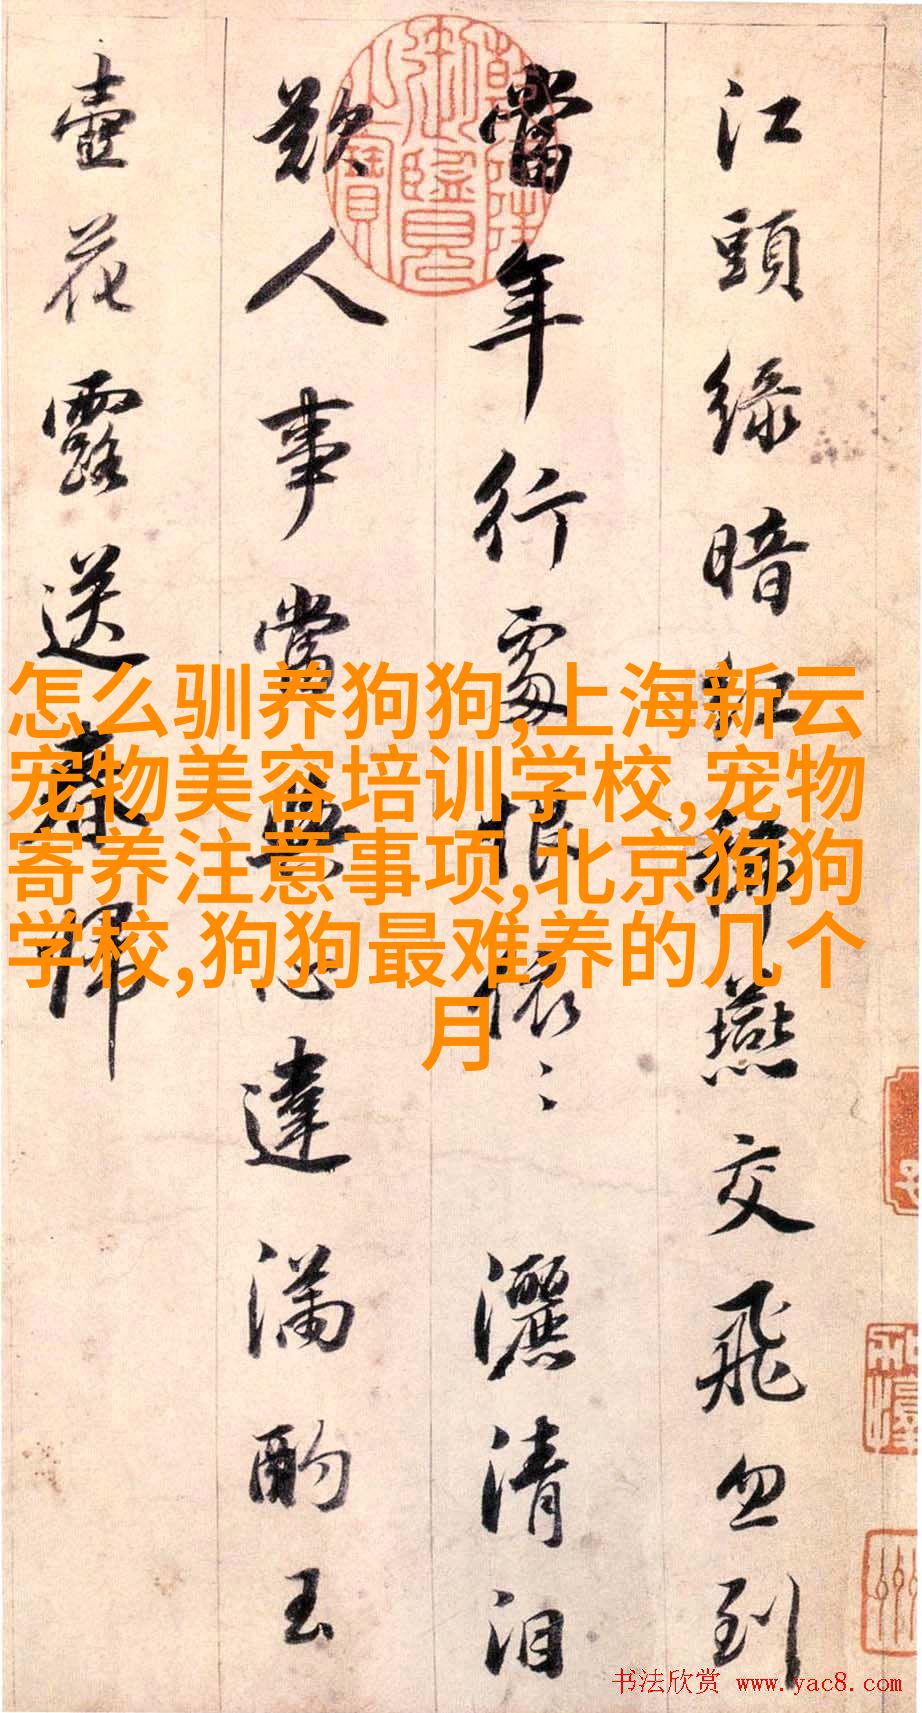 江頭綠暗紅稀燕交飛忽到
當年行處恨依〻灑清泪
歎人事當無心違滿酌玉
壺花露送春歸
怎么驯养狗狗,上海新云
宠物美容培训学校,宠物
寄养注意事项,北京狗狗
学校,狗狗最难养的几个
月
乾隆御覽之寶
书法欣赏 www.yac8.com